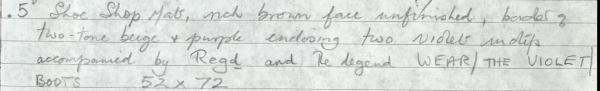 .5 Shoe Shop Mats, rich brown face unfinished, border of
two-tone beige & purple enclosing two violet motifs
accompanied by Regd and the legend WEAR/THE VIOLET/
BOOTS 52 x 72